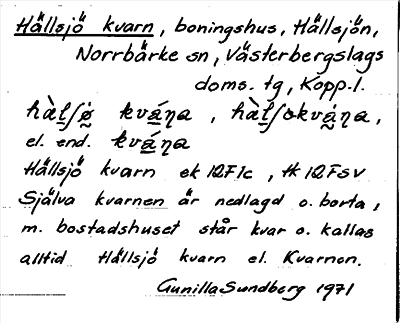 Hällsjö kvarn, boningshus, Hällsjön,
Norrbärke sn, Västerbergslags
doms. tg, Kopp.l.
el. end.
Hällsjö kvarn ek 12F1c, tk 12FSV
Själva kvarnen är nedlagd o. borta,
m. bostadshuset står kvar o. kallas
alltid Hällsjö kvarn el. Kvarnen.
Gunilla Sundberg 1971